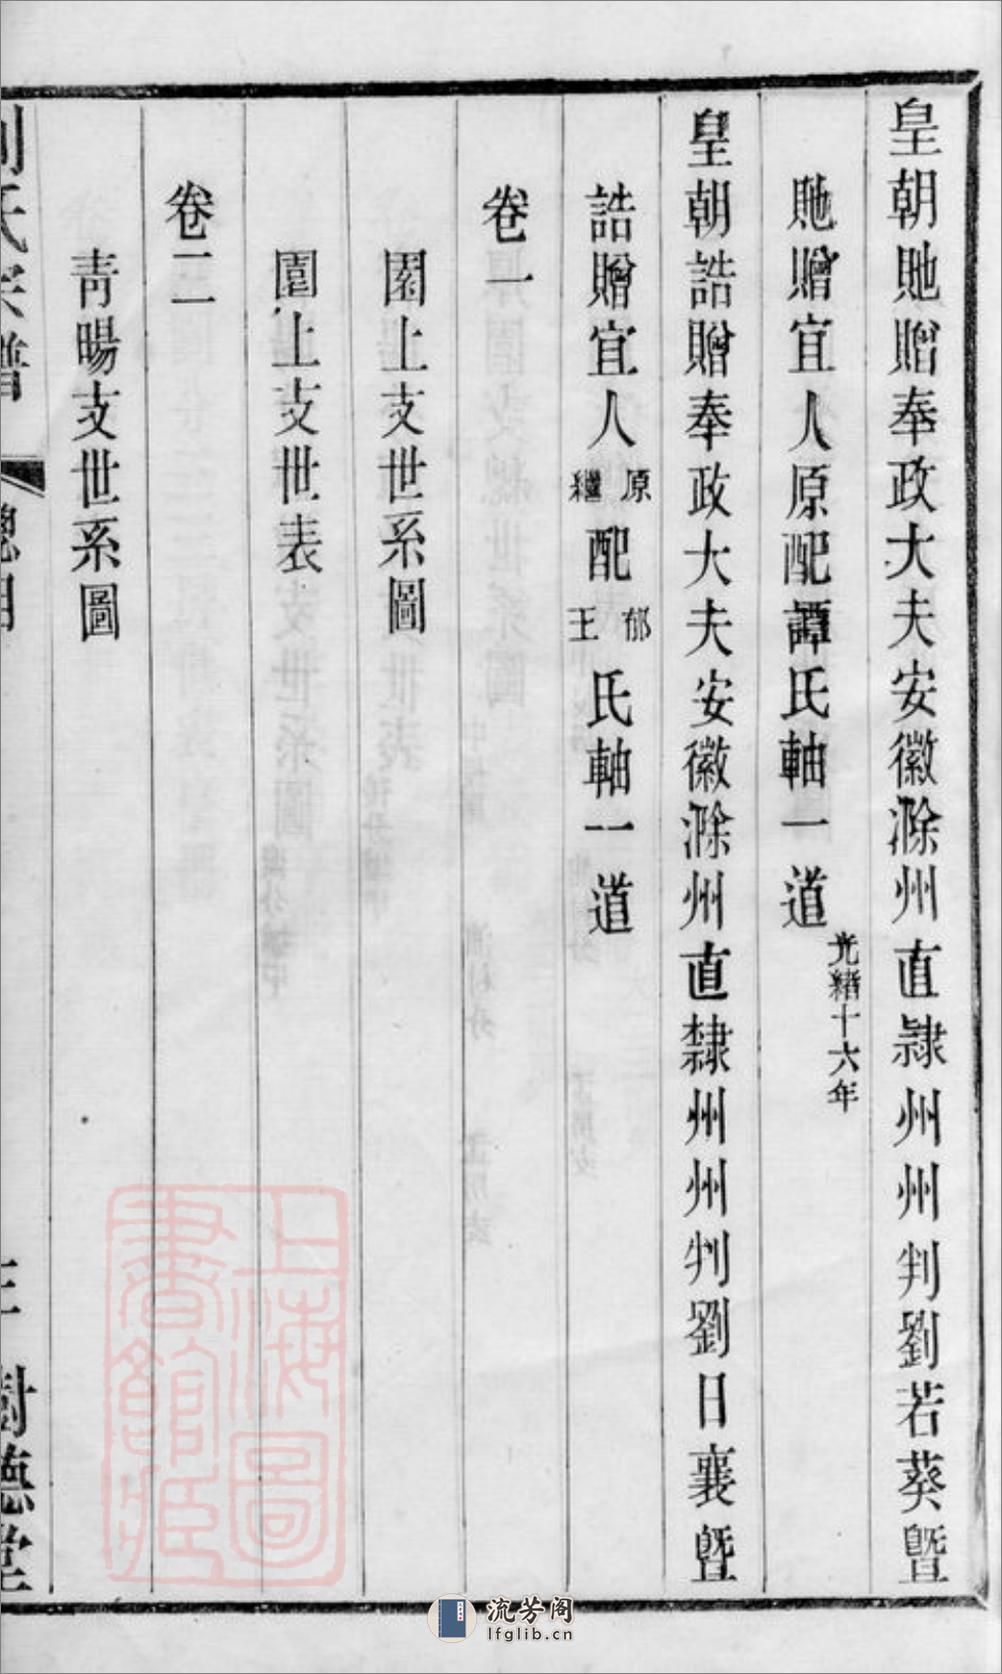 皇朝貤贈奉政大夫安徽滁州直隸州州判劉若葵暨
貤贈宜人原配譚氏軸一道光緒十六年
皇朝誥贈奉政大夫安徽滁州直隸州州判劉日襄暨
誥贈宜人原繼配郁王氏軸一道
卷一
園上支世系圖
園上支世表
卷二
青暘支世系圖
劉氏宗譜 總目 三 樹德堂
上海圖書館藏
流芳阁
lfglib.cn